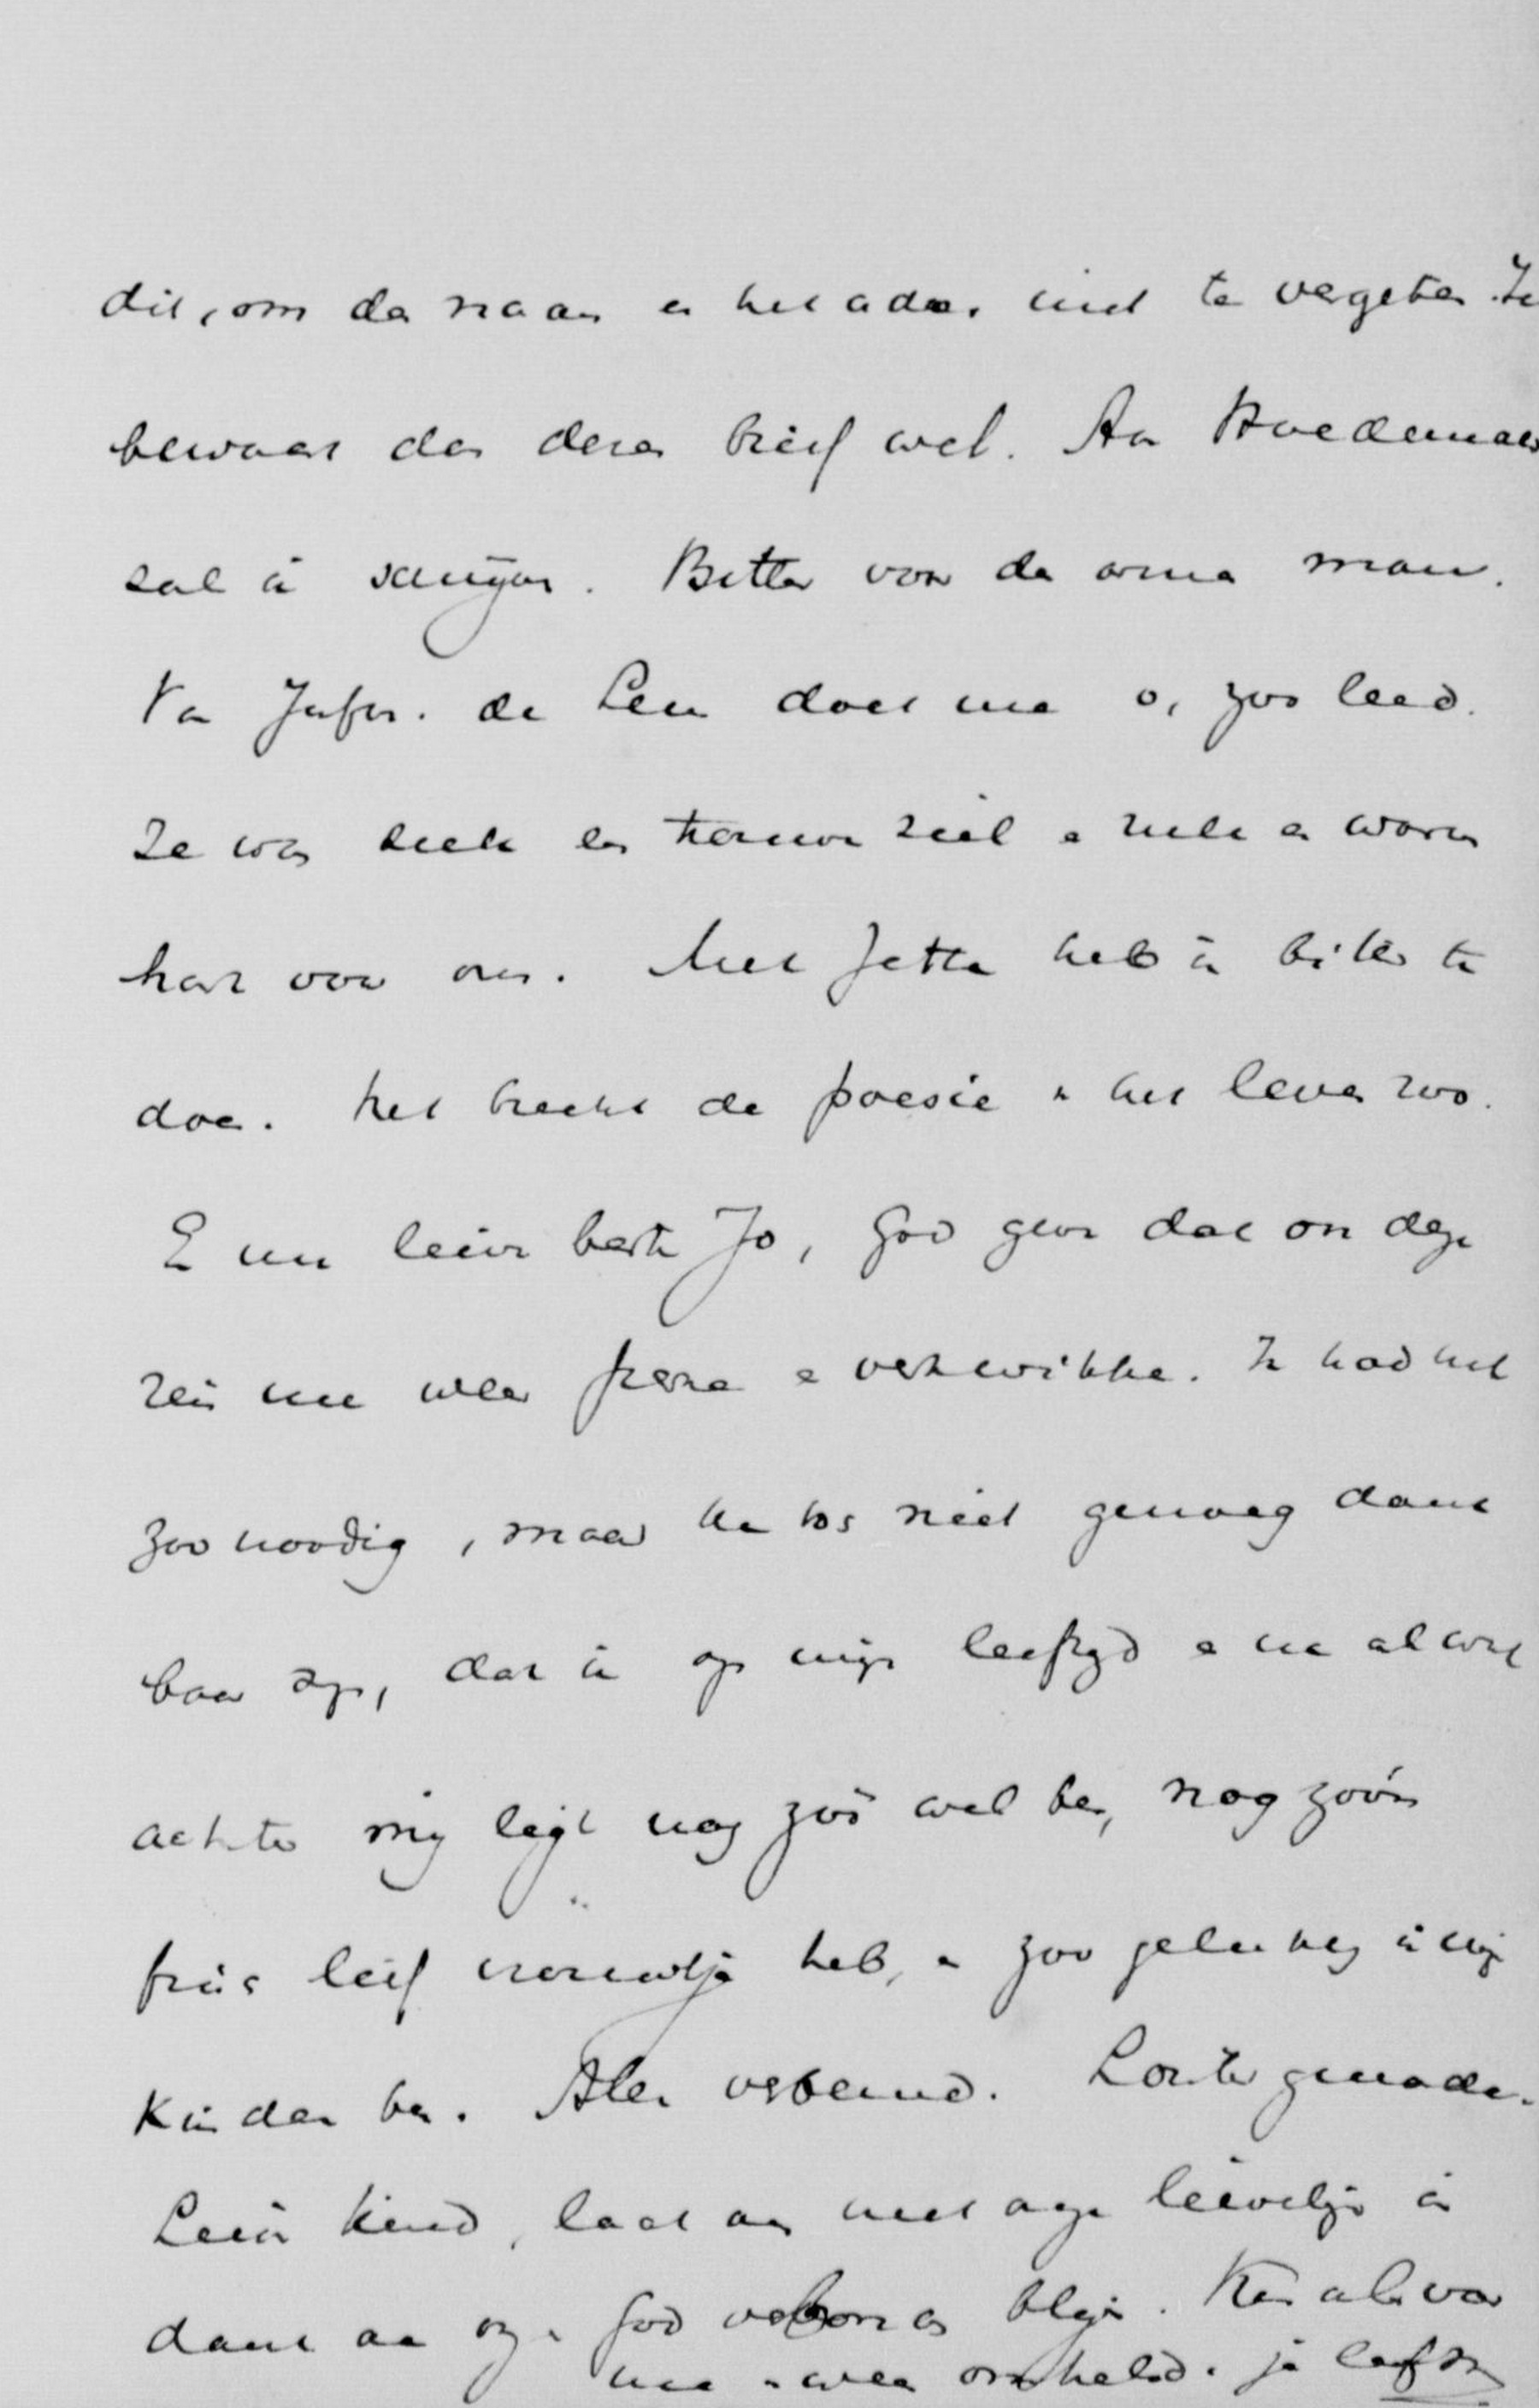 dit, om de naam en het adres niet te vergeten. Ik
bewaar dan deze brief wel. Aan Hoedemaker
zal ik schrijven. Bitter voor de arme man.
Van Jufr. de Leeu doet me o, zoo leed.
Ze was een trouwe ziel en had een warm
hart voor ons. Met Jetta heb ik bitter te
doen. Het breekt de poesie in het leven zoo.
En nu lieve beste Jo, God geve dat onze dagen
zijn me weer en verkwikken. Ik had het
zoo noodig, maar ben toch niet genoeg dank
baar er op, dat ik op mijn leeftijd en na al wat
achter mij ligt nog zoo wel ben, nog zoo'n
frisch lief vrouwtje heb, en zoo gelukkig in mijn
kinderen ben. Alles verbeurd. Louter genade.
Lieve kind, laat ons met onze lievelingen in
dank aan onze God verbonden blijven. Kus alvast
me weer omhelsd. je